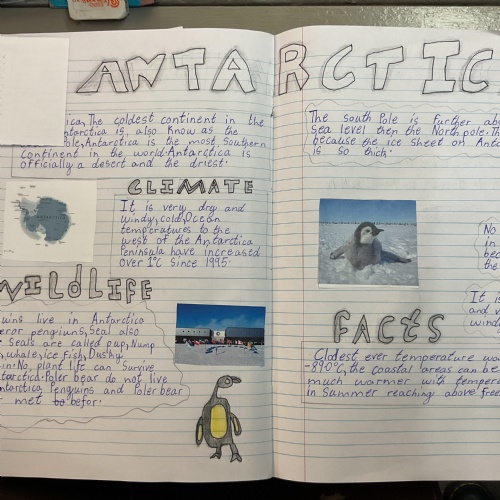 ANTARCTIC
The coldest continent in the
Antarctica is also know as the
ole, Antarctica is the most Southern
Continent in the world. Antarctica is
officially a desert and the driest.
CLIMATE
It is very dry and
windy, cold, Ocean
temperatures to the
west of the Antarctica
Peninsula have increased
over 1°C since 1995.
WIldLIFE
uins live in Antarctica
eror penguins, Seal also
Seals are called pup,
whale, ice fish, Dusky
in. No, plant life can Survive
tarctica. Poler bear do not live
ntarctica Penguins and Polerbear
met to befor.
The south Pole is further abo
Sea level then the North pole. Th
because the ice sheet on Anta
is so thick.
No
in
bec
the
It is
and v
wind
FACtS
Cloldest ever temperature wa
-89.0°C, the coastal areas can be
much warmer with tempera
in Summer reaching above free